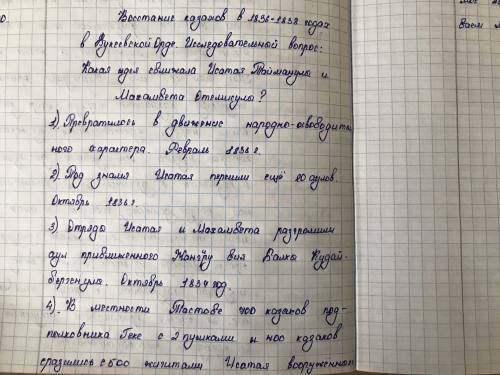 Восстание казахов в 1836-1838 годах
в Букеевской Орде. Исследовательной вопрос:
Какая идея сближала Исатая Тайманулы и
Махамбета Отемисулы?
1). Превратилось в движение народно-освободитель
ного характера. Февраль 1836 г.
2). Под знамя Исатая перешли ещё 20 аулов.
Октябрь 1836 г.
3) Отряды Исатая и Махамбета разгромили
аул приближенного Жангiру бия Балки Кудай-
бергенула. Октябрь 1837 год.
4). В местности Тастобе 400 казаков под-
полковника Геке с 2 пушками и 400 казахов
сразились с 500 жигитами Исатая вооруженных